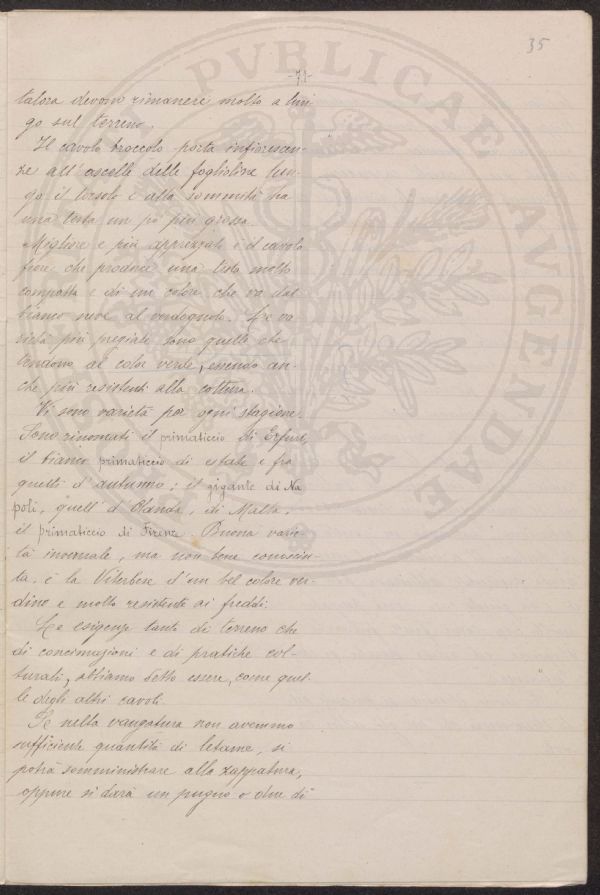 35
-71-
talora devono rimanere molto a lun-
go sul terreno.
Il cavolo broccolo porta inflorescen-
ze all'ascelle delle foglioline lun-
go il torsolo e alla sommità ha
una testa un pò più grossa.
Migliore e più apprezzato è il cavolo
fiore che produce una testa molto
compatta e di un colore che va dal
bianco neve al verdognolo. Le va
rietà più pregiate sono quelle che
tendono al color verde, essendo an-
che più resistenti alla cottura.
Vi sono varietà per ogni stagione.
Sono rinomati il primaticcio di Erfurt,
il bianco primaticcio di estate e fra
quelli d'autunno; il gigante di Na
poli, quell d'Olanda, di Malta,
il primaticcio di Firenze. Buona varie-
tà invernale, ma non bene conosciu-
ta, è la Viterbese d'un bel colore ver-
dino e molto resistente ai freddi.
Le esigenze tanto di terreno che
di concimazioni e di pratiche col-
turali, abbiamo detto essere, come quel-
le degli altri cavoli.
Se nella vangatura non avemmo
sufficiente quantità di letame, si
potrà somministrare alla zappatura,
oppure si darà un pugno o due di
PVBLICAE AVGENDAE